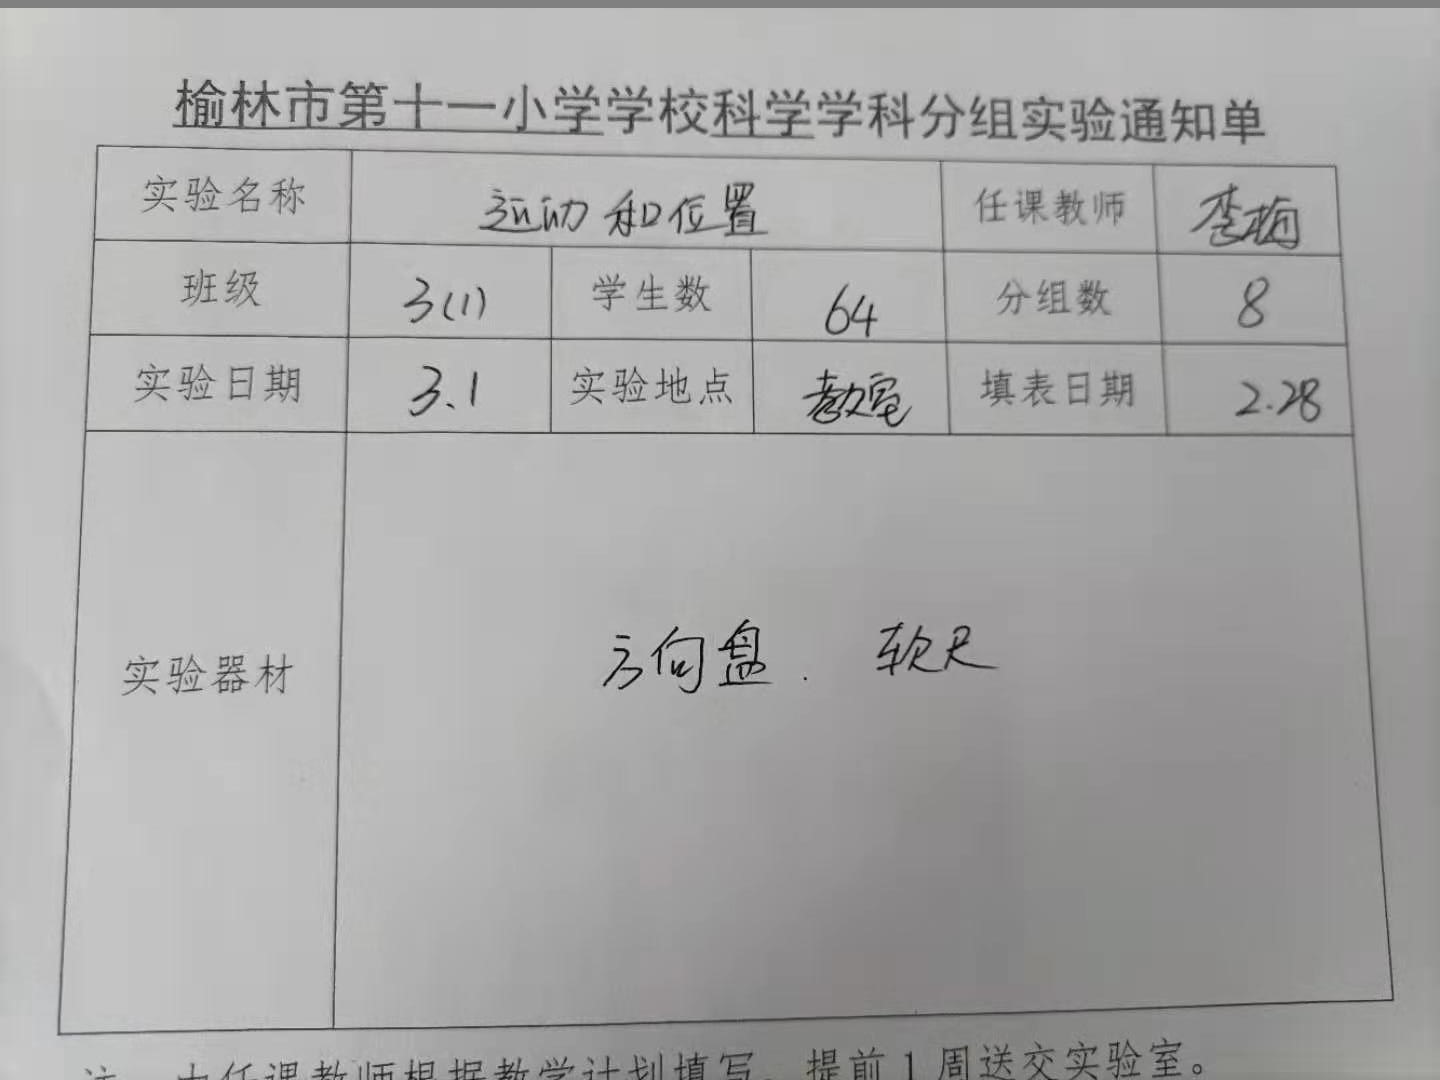 榆林市第十一小学学校科学学科分组实验通知单
实验名称 运动和位置 任课教师 李梅
班级 3(1) 学生数 64 分组数 8
实验日期 3.1 实验地点 教室 填表日期 2.28
实验器材 方向盘. 软尺
注 由任课教师根据教学计划填写，提前1周送交实验室。